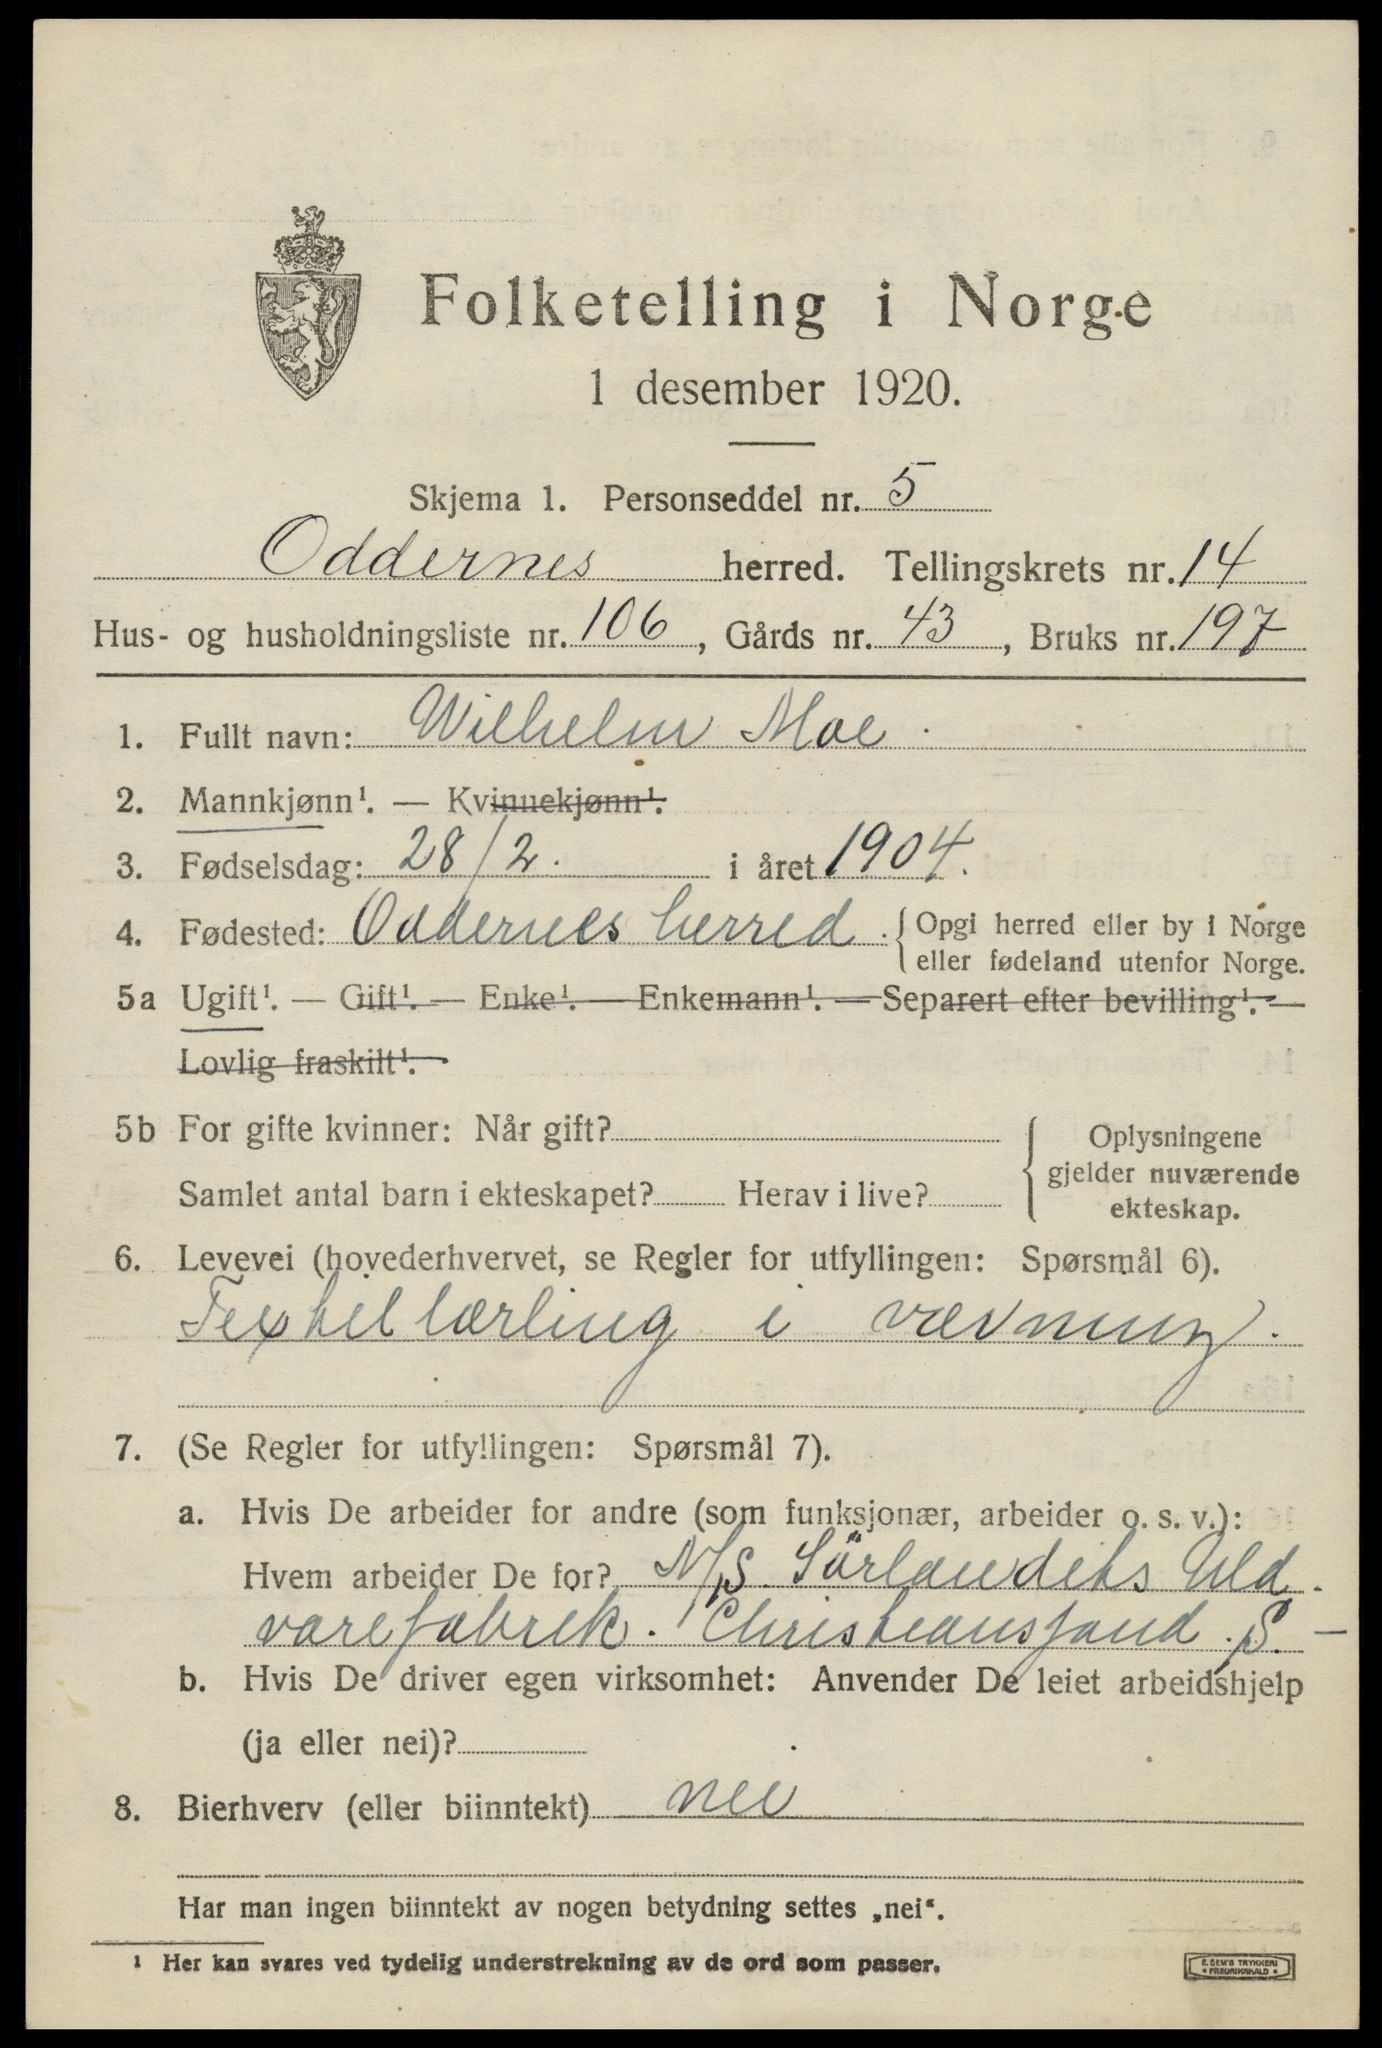 Folketelling i Norge
1 desember 1920.
Skjema 1. Personseddel nr. 5
Oddernes herred. Tellingskrets nr. 14
Hus- og husholdningsliste nr. 106, Gårds nr. 43, Bruks nr. 197
1. Fullt navn: Wilhelm Moe.
2. Mannkjønn¹. — Kvinnekjønn¹.
3. Fødselsdag: 28/2. i året 1904.
4. Fødested: Oddernes herred. { Opgi herred eller by i Norge
eller fødeland utenfor Norge.
5a Ugift¹. — Gift¹. — Enke¹. — Enkemann¹. — Separert efter bevilling¹. —
Lovlig fraskilt¹.
5b For gifte kvinner: Når gift?
Samlet antal barn i ekteskapet? Herav i live?
Oplysningene
gjelder nuværende
ekteskap.
6. Levevei (hovederhvervet, se Regler for utfyllingen: Spørsmål 6).
Textil lærling i vævning.
7. (Se Regler for utfyllingen: Spørsmål 7).
a. Hvis De arbeider for andre (som funksjonær, arbeider o. s. v.):
Hvem arbeider De for? A/S. Sörlandets Uld
varefabrik. Christiansand. S. —
b. Hvis De driver egen virksomhet: Anvender De leiet arbeidshjelp
(ja eller nei)?
8. Bierhverv (eller biinntekt) nei
Har man ingen biinntekt av nogen betydning settes „nei“.
¹ Her kan svares ved tydelig understrekning av de ord som passer.
E. SEM'S TRYKKERI
FREDRIKSHALD